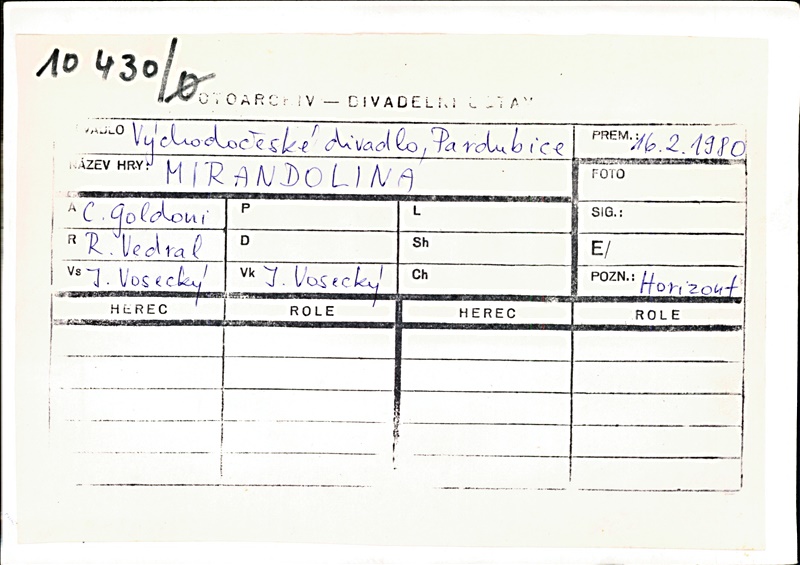 10 430/D
FOTOARCHIV — DIVADELNÍ ÚSTAV
DIVADLO Východočeské divadlo, Pardubice PREM.: 16.2.1980
NÁZEV HRY: MIRANDOLINA FOTO
A C. Goldoni P L SIG.:
R R. Vedral D Sh E/
Vs J. Vosecký Vk J. Vosecký Ch POZN.: Horizont
HEREC ROLE HEREC ROLE